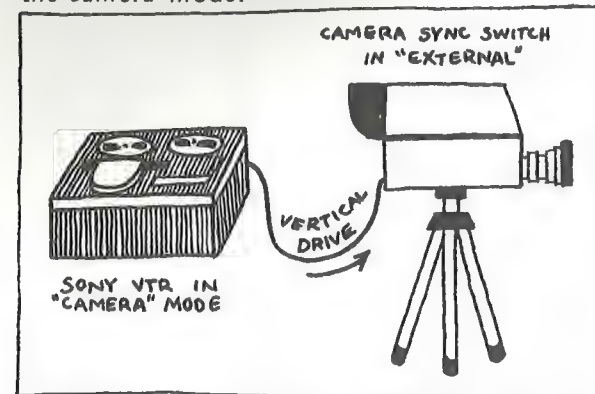 the camera mode.
CAMERA SYNC SWITCH
IN "EXTERNAL"
VERTICAL
DRIVE
SONY VTR IN
"CAMERA" MODE